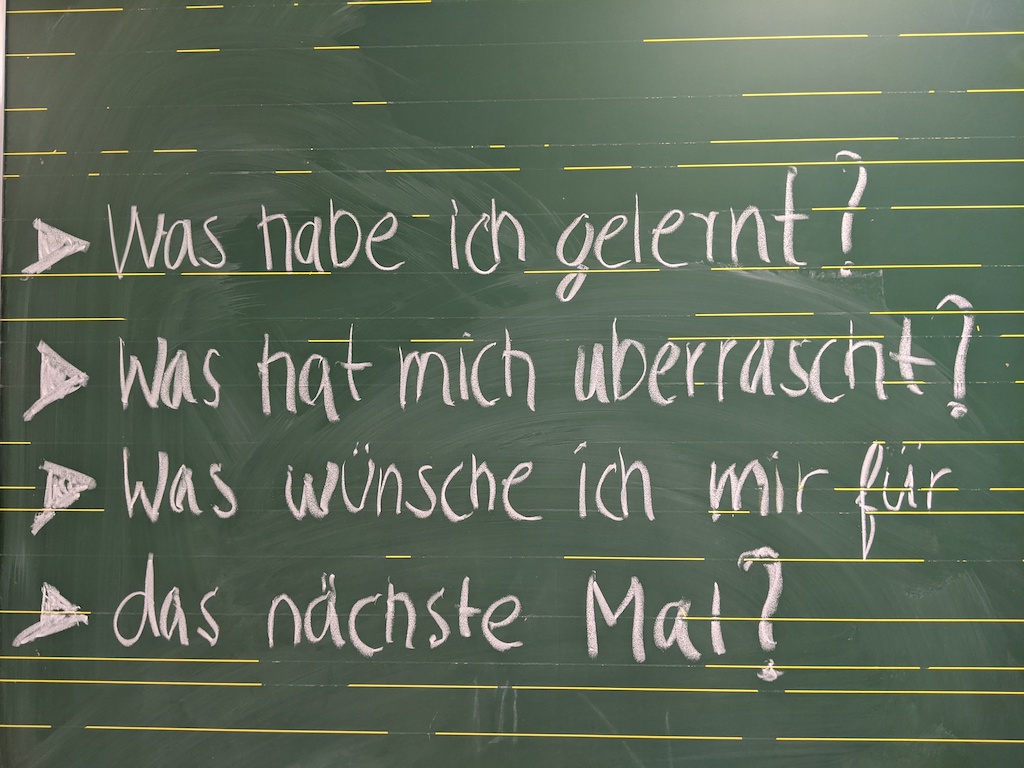 Was habe ich gelernt?
Was hat mich uberrascht?
Was wünsche ich mir für
das nächste Mal?